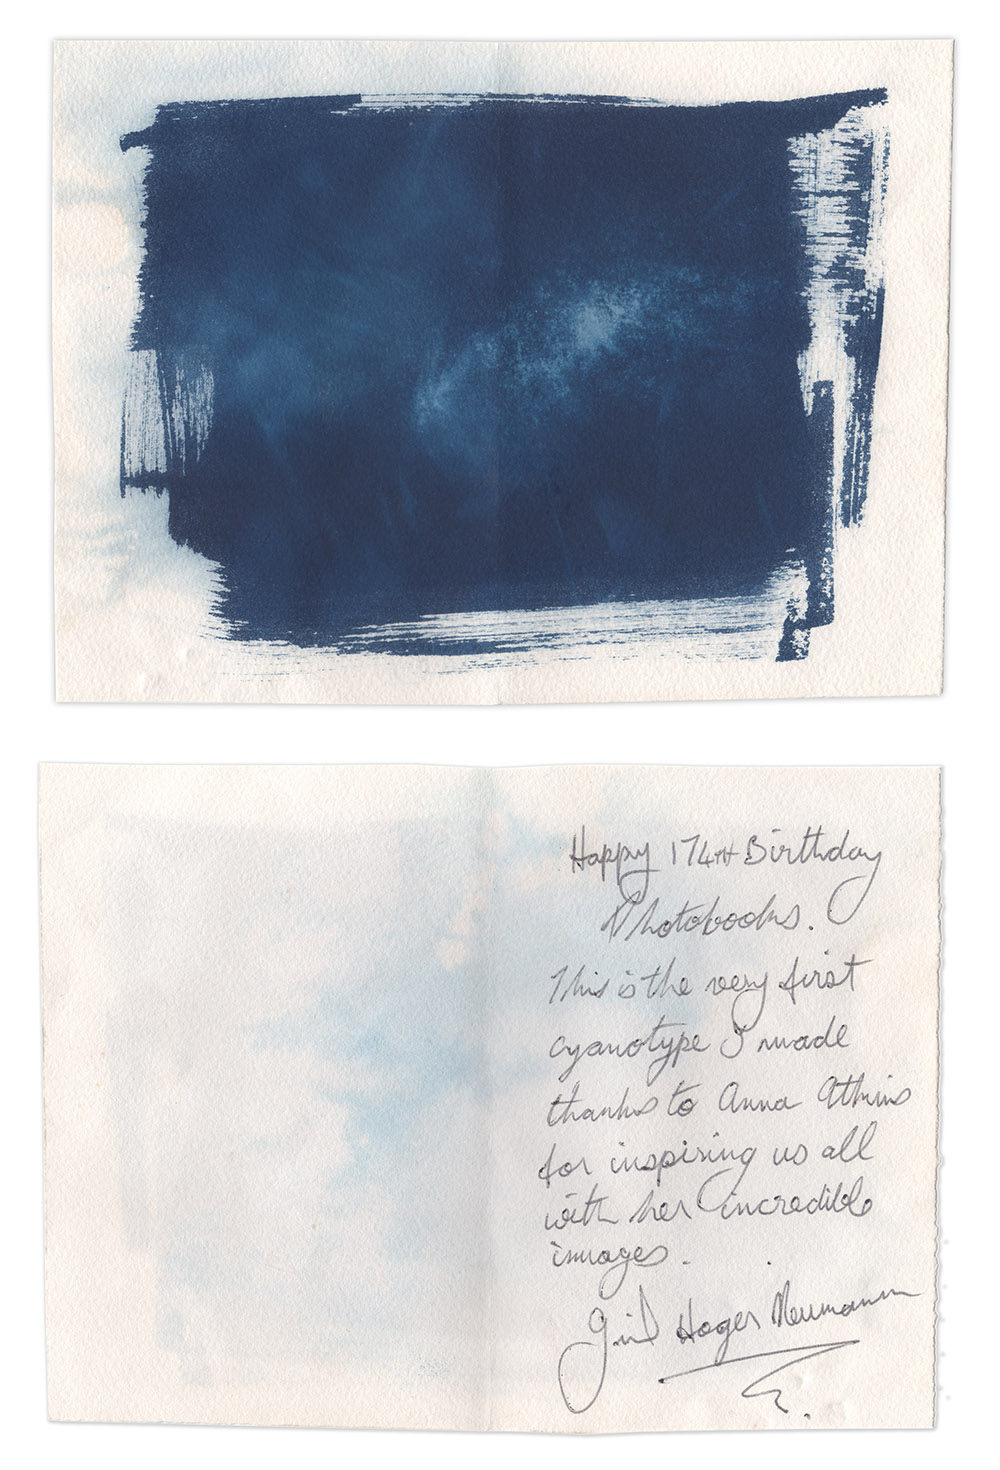 Happy 174TH Birthday
Photobooks.
This is the very first
cyanotype I made
thanks to Anna Atkins
for inspiring us all
with her incredible
images.
Hoger Neumann